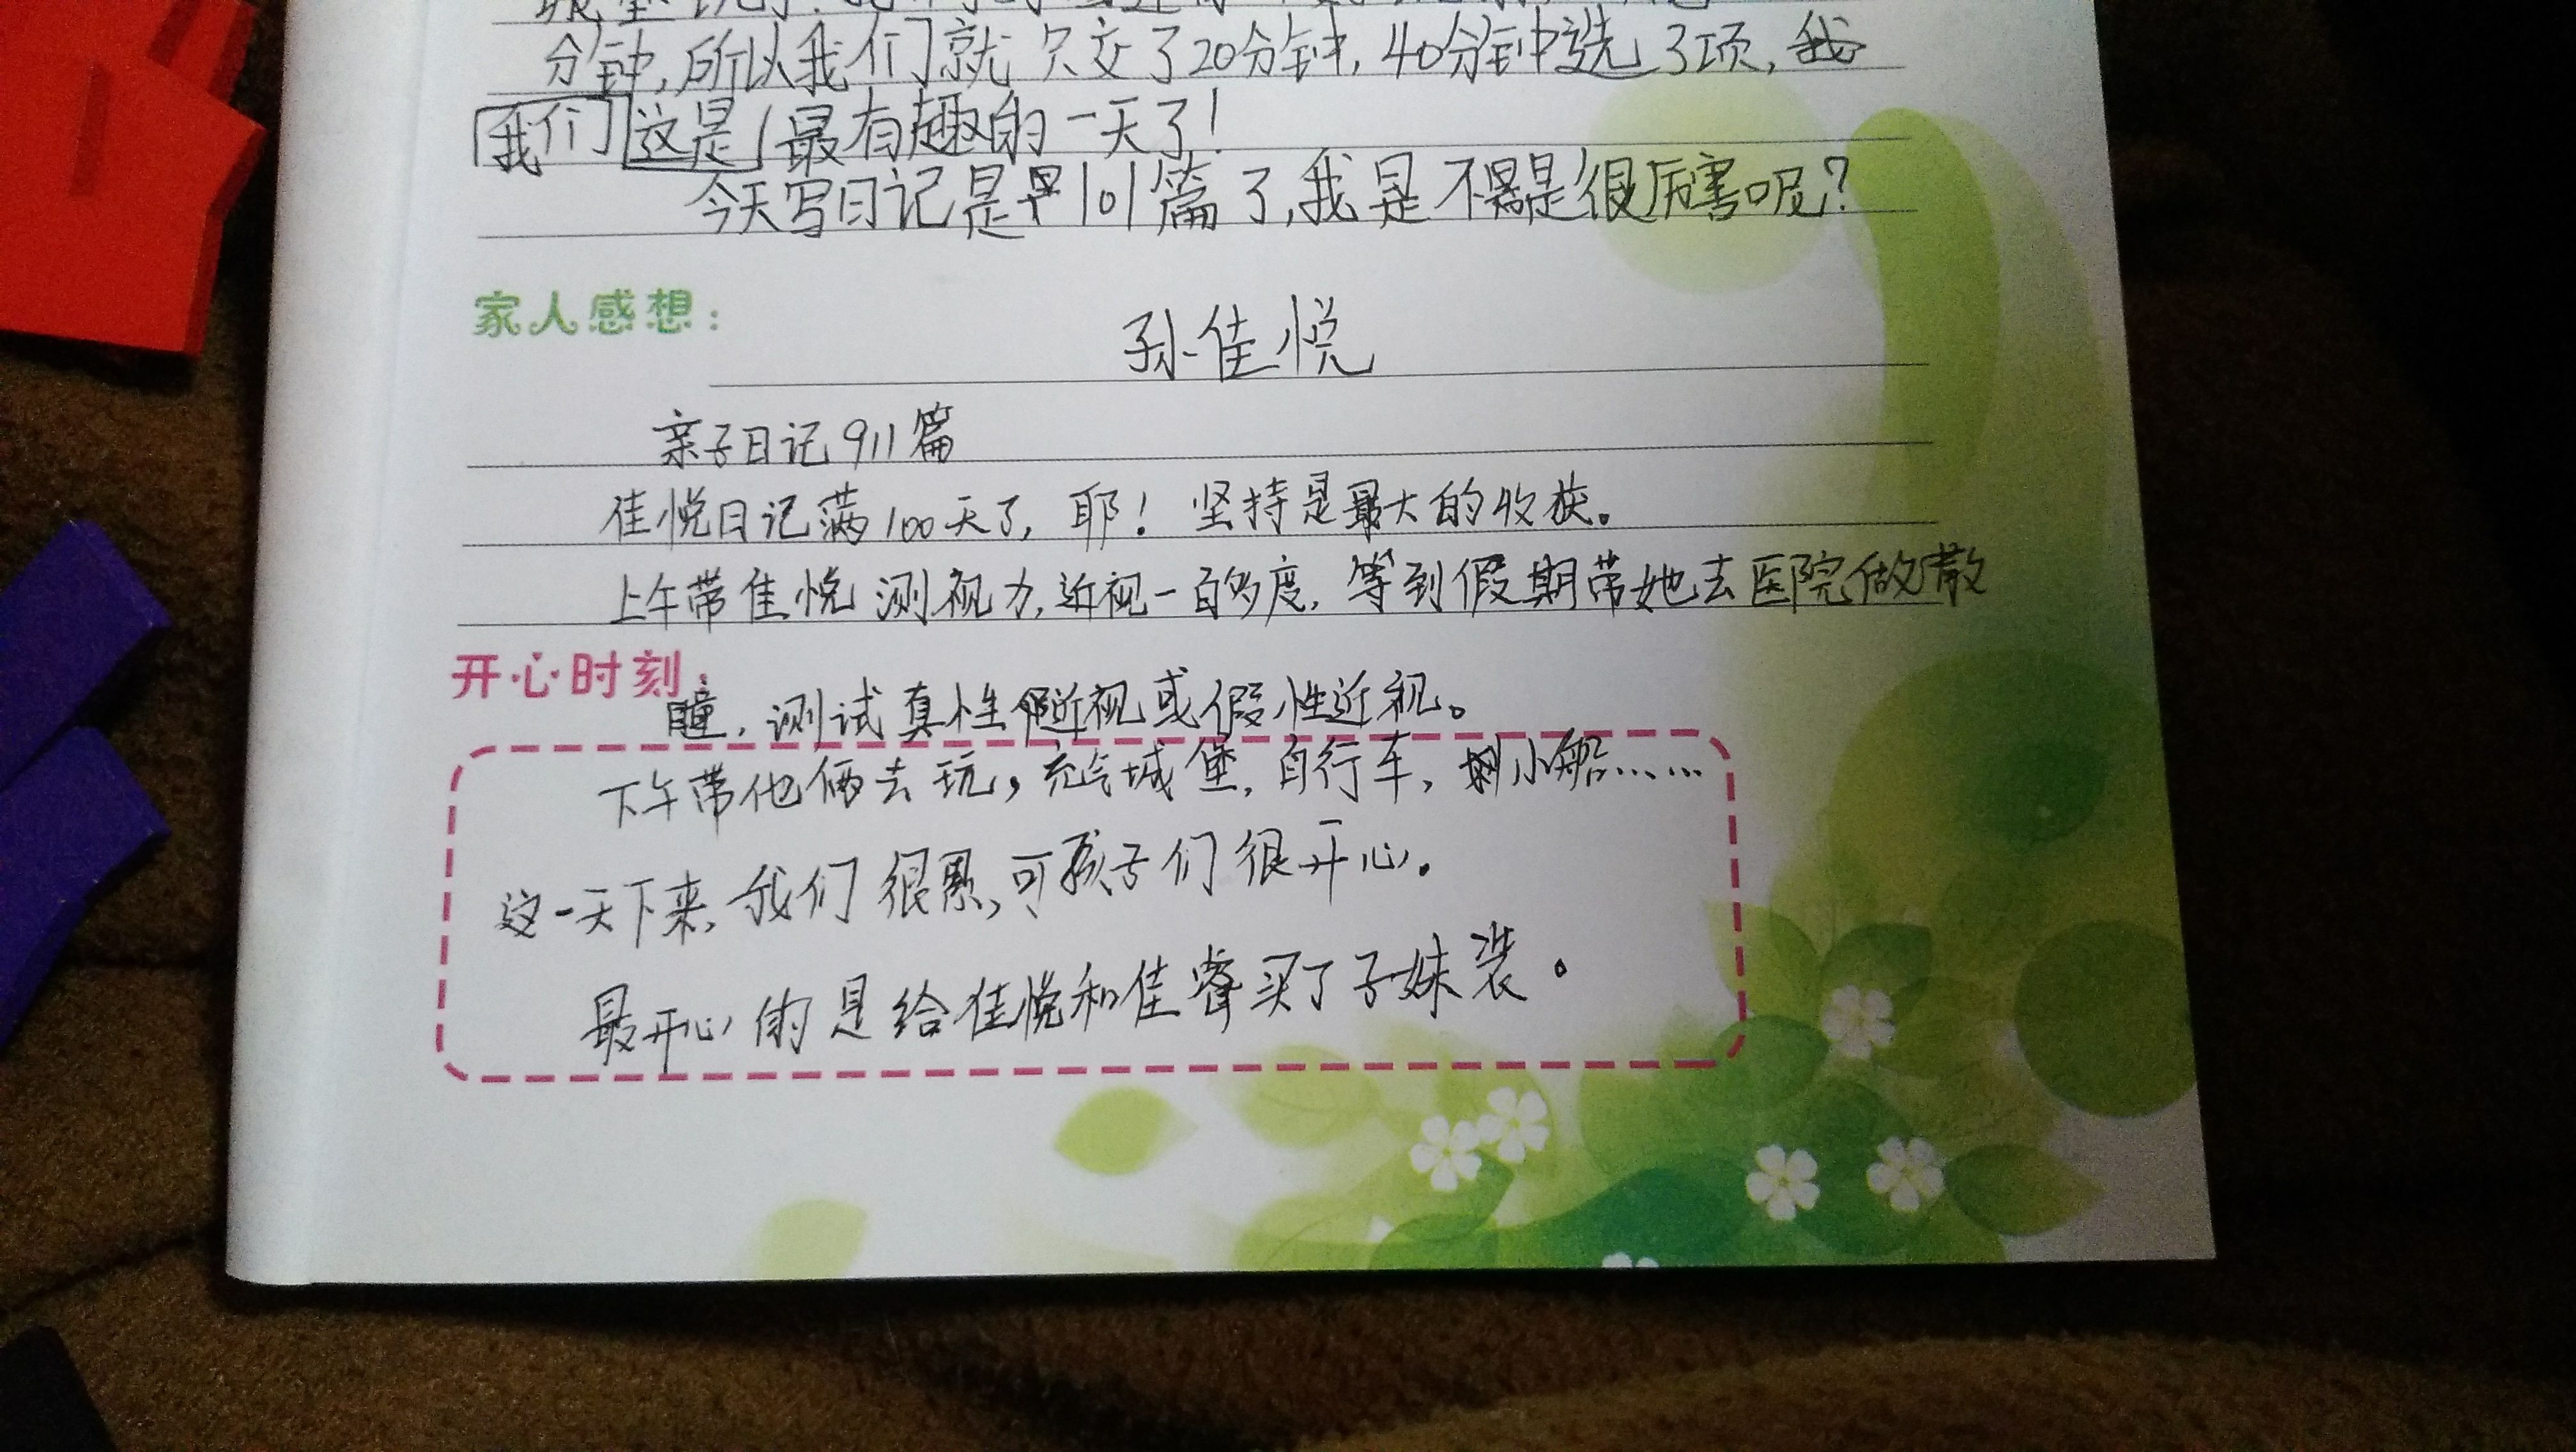 分钟,所以我们就只交了20分钟,40分钟选3项,
我们这是最有趣的一天了!
今天写日记是早101篇了,我是不是很厉害呢?
家人感想:
孙佳悦
亲子日记911篇
佳悦日记满100天了,耶!坚持是最大的收获。
上午带佳悦测视力,近视一百多度,等到假期带她去医院做散
开心时刻:
瞳,测试真性近视或假性近视。
下午带他俩去玩,充气城堡,自行车,划小船……
这一天下来,我们很累,可孩子们很开心。
最开心的是给佳悦和佳睿买了子妹装。